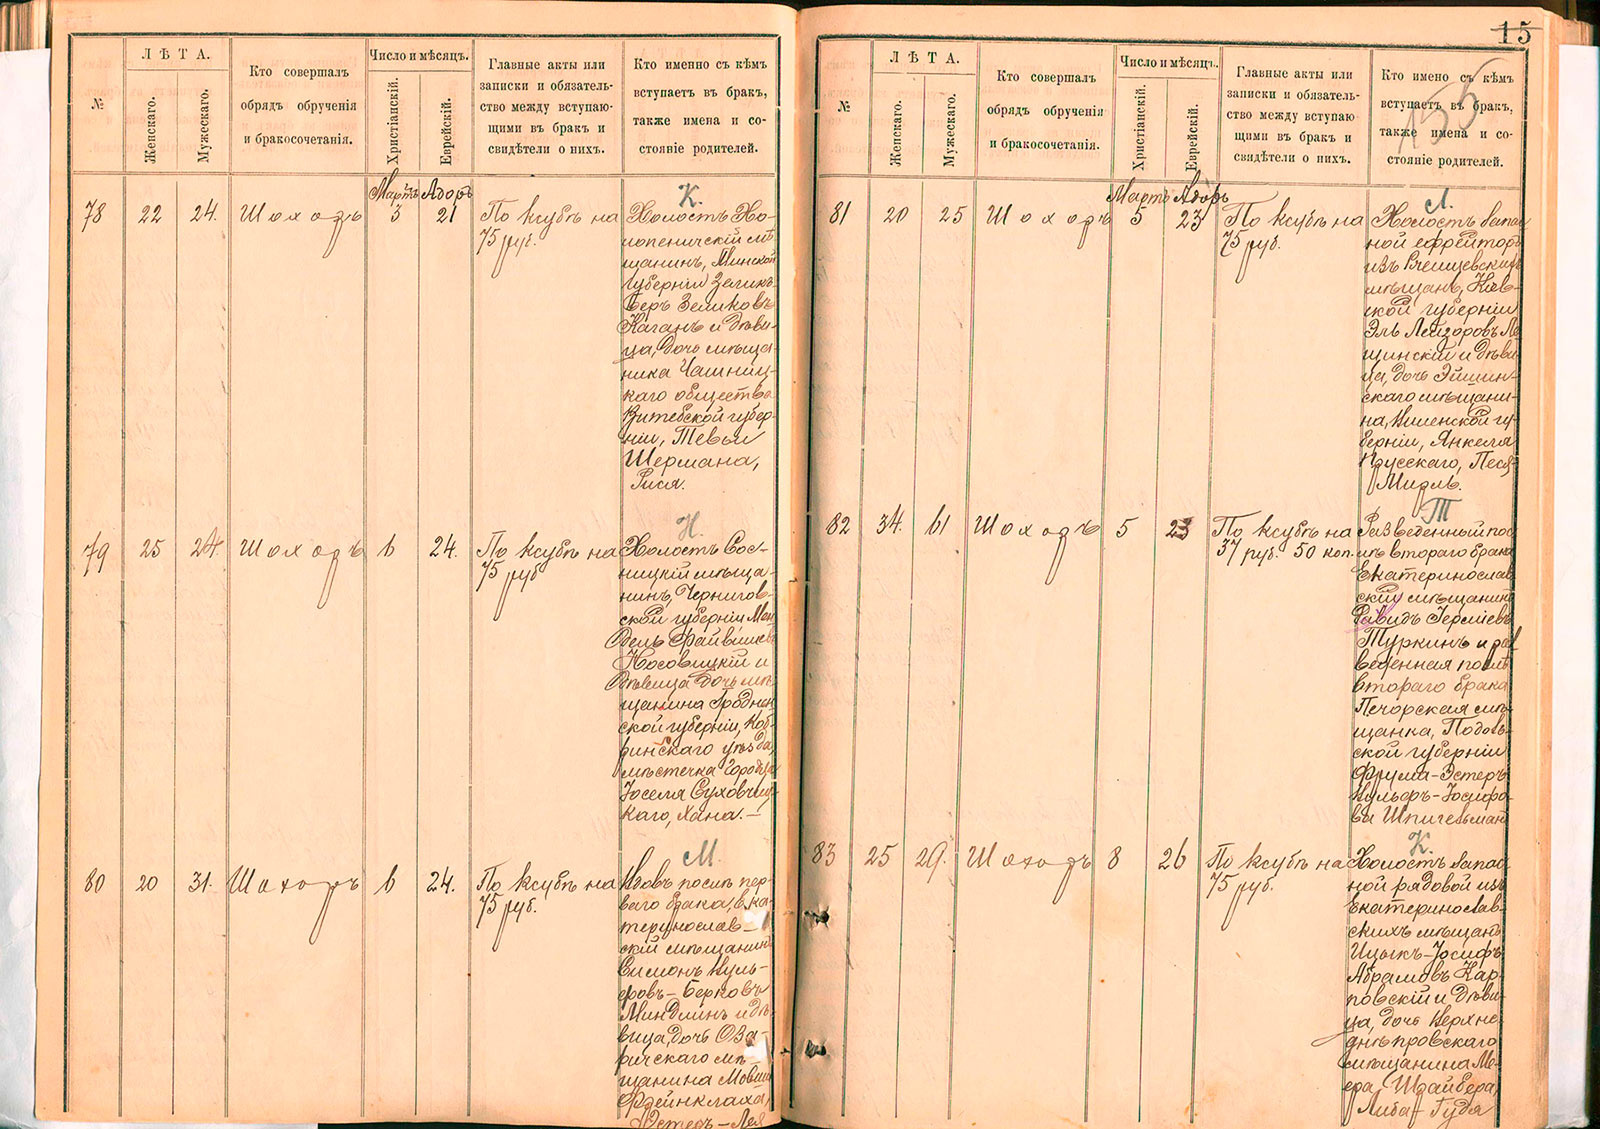 №
ЛѢТА.
Женскаго.
Мужескаго.
Кто совершалъ
обрядъ обрученія
и бракосочетанія.
Число и мѣсяцъ.
Христіанскій.
Еврейскій.
Главные акты или
записки и обязатель-
ство между вступаю-
щими въ бракъ и
свидѣтели о нихъ.
Кто именно съ кѣмъ
вступаетъ въ бракъ,
также имена и со-
стояніе родителей.
Мартъ Адоръ
78 22 24. Шоходъ 5 21 По ксубѣ на
75 руб.
К.
Холостъ Хо-
лопеничскій мѣ-
щанинъ, Минской
губерніи Зеликъ-
Беръ Зеликовъ
Каганъ и дѣви-
ца, дочь мѣща-
нина Чашниц-
каго общества
Витебской губер-
ніи, Тевьи
Шермана,
Рися.
79 25 24. Шоходъ 6 24. По ксубѣ на
75 руб
Н.
Холостъ Сос-
ницкій мѣща-
нинъ, Чернигов-
ской губерніи Мен-
дель Файвишевъ
Носовицкій и
дѣвица дочь мѣ-
щанина Гроднен-
ской губерніи, Коб-
ринскаго уѣзда,
мѣстечка Городца
Іоселя Суховчиц-
каго, Хана. —
80 20 31. Шоходъ 6 24. По ксубѣ на
75 руб.
М.
Вдовъ послѣ пер-
ваго брака, Ека-
теринослав-
скій мѣщанинъ
Симонъ Вуль-
фовъ-Берковъ
Миндлинъ и дѣ-
вица, дочь Оза-
ричскаго мѣ-
щанина Мовши
Фейнклаха,
Эстеръ-Лея
15
156
№
ЛѢТА.
Женскаго.
Мужескаго.
Кто совершалъ
обрядъ обрученія
и бракосочетанія.
Число и мѣсяцъ.
Христіанскій.
Еврейскій.
Главные акты или
записки и обязатель-
ство между вступаю
щими въ бракъ и
свидѣтели о нихъ.
Кто имено съ кѣмъ
вступаетъ въ бракъ,
также имена и со-
стояніе родителей.
Мартъ Адоръ
81 20 25 Шоходъ 5 23 По ксубѣ на
75 руб.
Л.
Холостъ запас-
ной ефрейторъ
изъ Ржищевскихъ
мѣщанъ, Кіев-
ской губерніи
Эль Лейзоровъ Ле-
щинскій и дѣви-
ца, дочь Эйшиш-
скаго мѣщани-
на, Виленской гу-
берніи, Янкеля
Прусскаго, Песя-
Мирль.
82 34. 61 Шоходъ 5 23 По ксубѣ на
37 руб. 50 коп.
Т
Разведенный пос-
лѣ втораго брака
Екатеринослав-
скій мѣщанинъ
Давидъ Герешевъ
Туркинъ и раз
веденная послѣ
втораго брака
Печорская мѣ-
щанка, Подоль-
ской губерніи
Фрума-Эстеръ
Вульфъ-Іосифо-
ва Шпигельманъ
83 25 29. Шоходъ 8 26 По ксубѣ на
75 руб.
К.
Холостъ запас-
ной рядовой изъ
Екатеринослав-
скихъ мѣщанъ
Ицыкъ-Іосифъ
Абрамовъ Кар-
повскій и дѣви-
ца, дочь Верхне-
днѣпровскаго
мѣщанина Ме-
ера Шрайбера,
Либа-Гудя